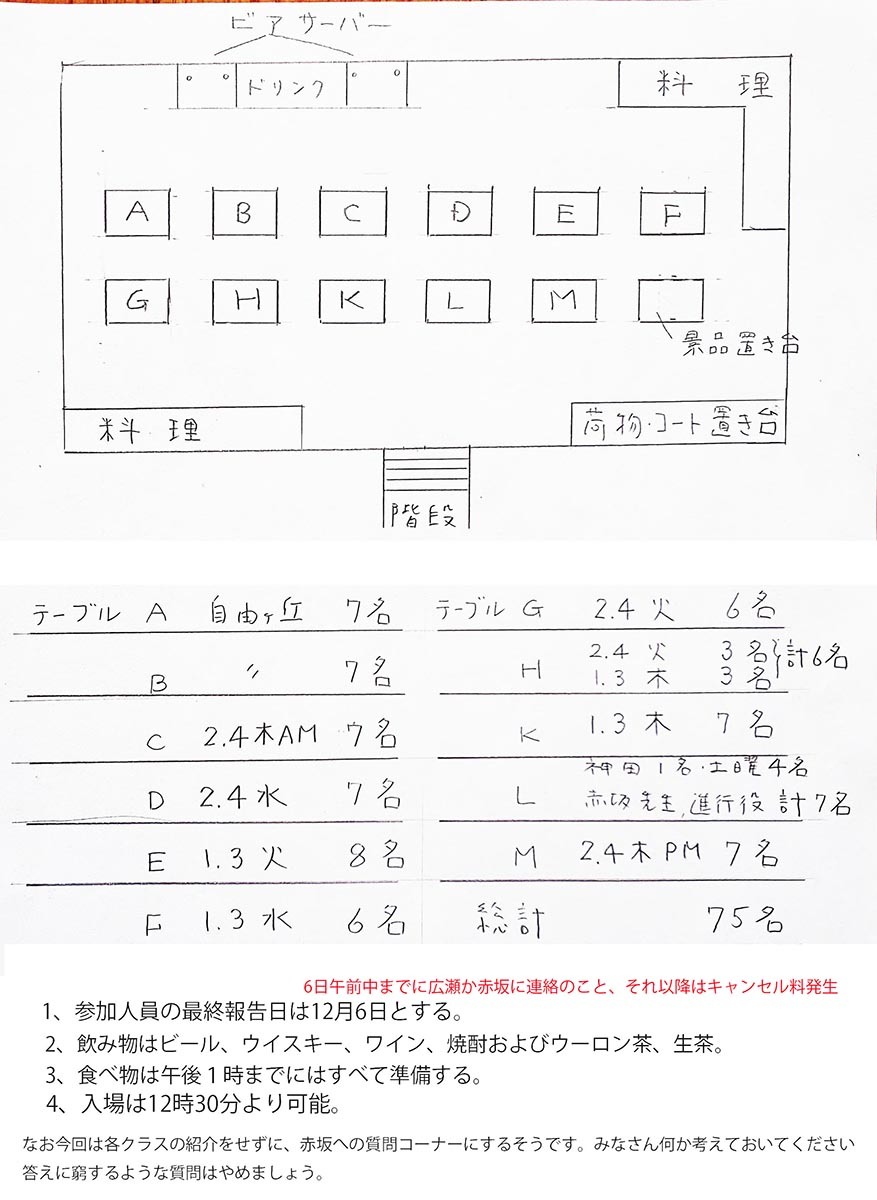 ビアサーバー
ドリンク
料理
A B C D E F
G H K L M
景品置き台
料理
荷物・コート置き台
階段
テーブル A 自由ヶ丘 7名
B 〃 7名
C 2.4木AM 7名
D 2.4水 7名
E 1.3火 8名
F 1.3水 6名
テーブル G 2.4火 6名
H 2.4火 3名 計6名
1.3木 3名
K 1.3木 7名
神田1名・土曜4名
L 赤坂先生、進行役 計7名
M 2.4木PM 7名
総計 75名
6日午前中までに広瀬か赤坂に連絡のこと、それ以降はキャンセル料発生
1、参加人員の最終報告日は12月6日とする。
2、飲み物はビール、ウイスキー、ワイン、焼酎およびウーロン茶、生茶。
3、食べ物は午後1時までにはすべて準備する。
4、入場は12時30分より可能。
なお今回は各クラスの紹介をせずに、赤坂への質問コーナーにするそうです。みなさん何か考えておいてください
答えに窮するような質問はやめましょう。